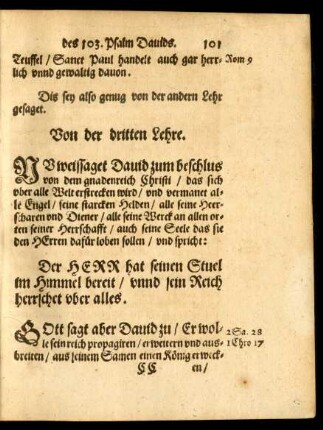 des 103. Psalm Dauids. 101
Teuffel / Sanct Paul handelt auch gar herr- Rom 9
lich vnnd gewaltig dauon.
Dis sey also genug von der andern Lehr
gesaget.
Von der dritten Lehre.
NV weissaget Dauid zum beschlus
von dem gnadenreich Christi / das sich
vber alle Welt erstrecken wird / vnd vermanet al-
le Engel / seine starcken Helden / alle seine Heer-
scharen vnd Diener / alle seine Werck an allen or-
ten seiner Herrschafft / auch seine Seele das sie
den HErren dafür loben sollen / vnd spricht:
Der HERR hat seinen Stuel
im Himmel bereit / vnnd sein Reich
herrschet vber alles.
GOtt sagt aber Dauid zu / Er wol- 2 Sa. 28
le sein reich propagiren / erweitern vnd aus- 1 Chro 17
breiten / aus seinem Samen einen König erweck-
CC en /